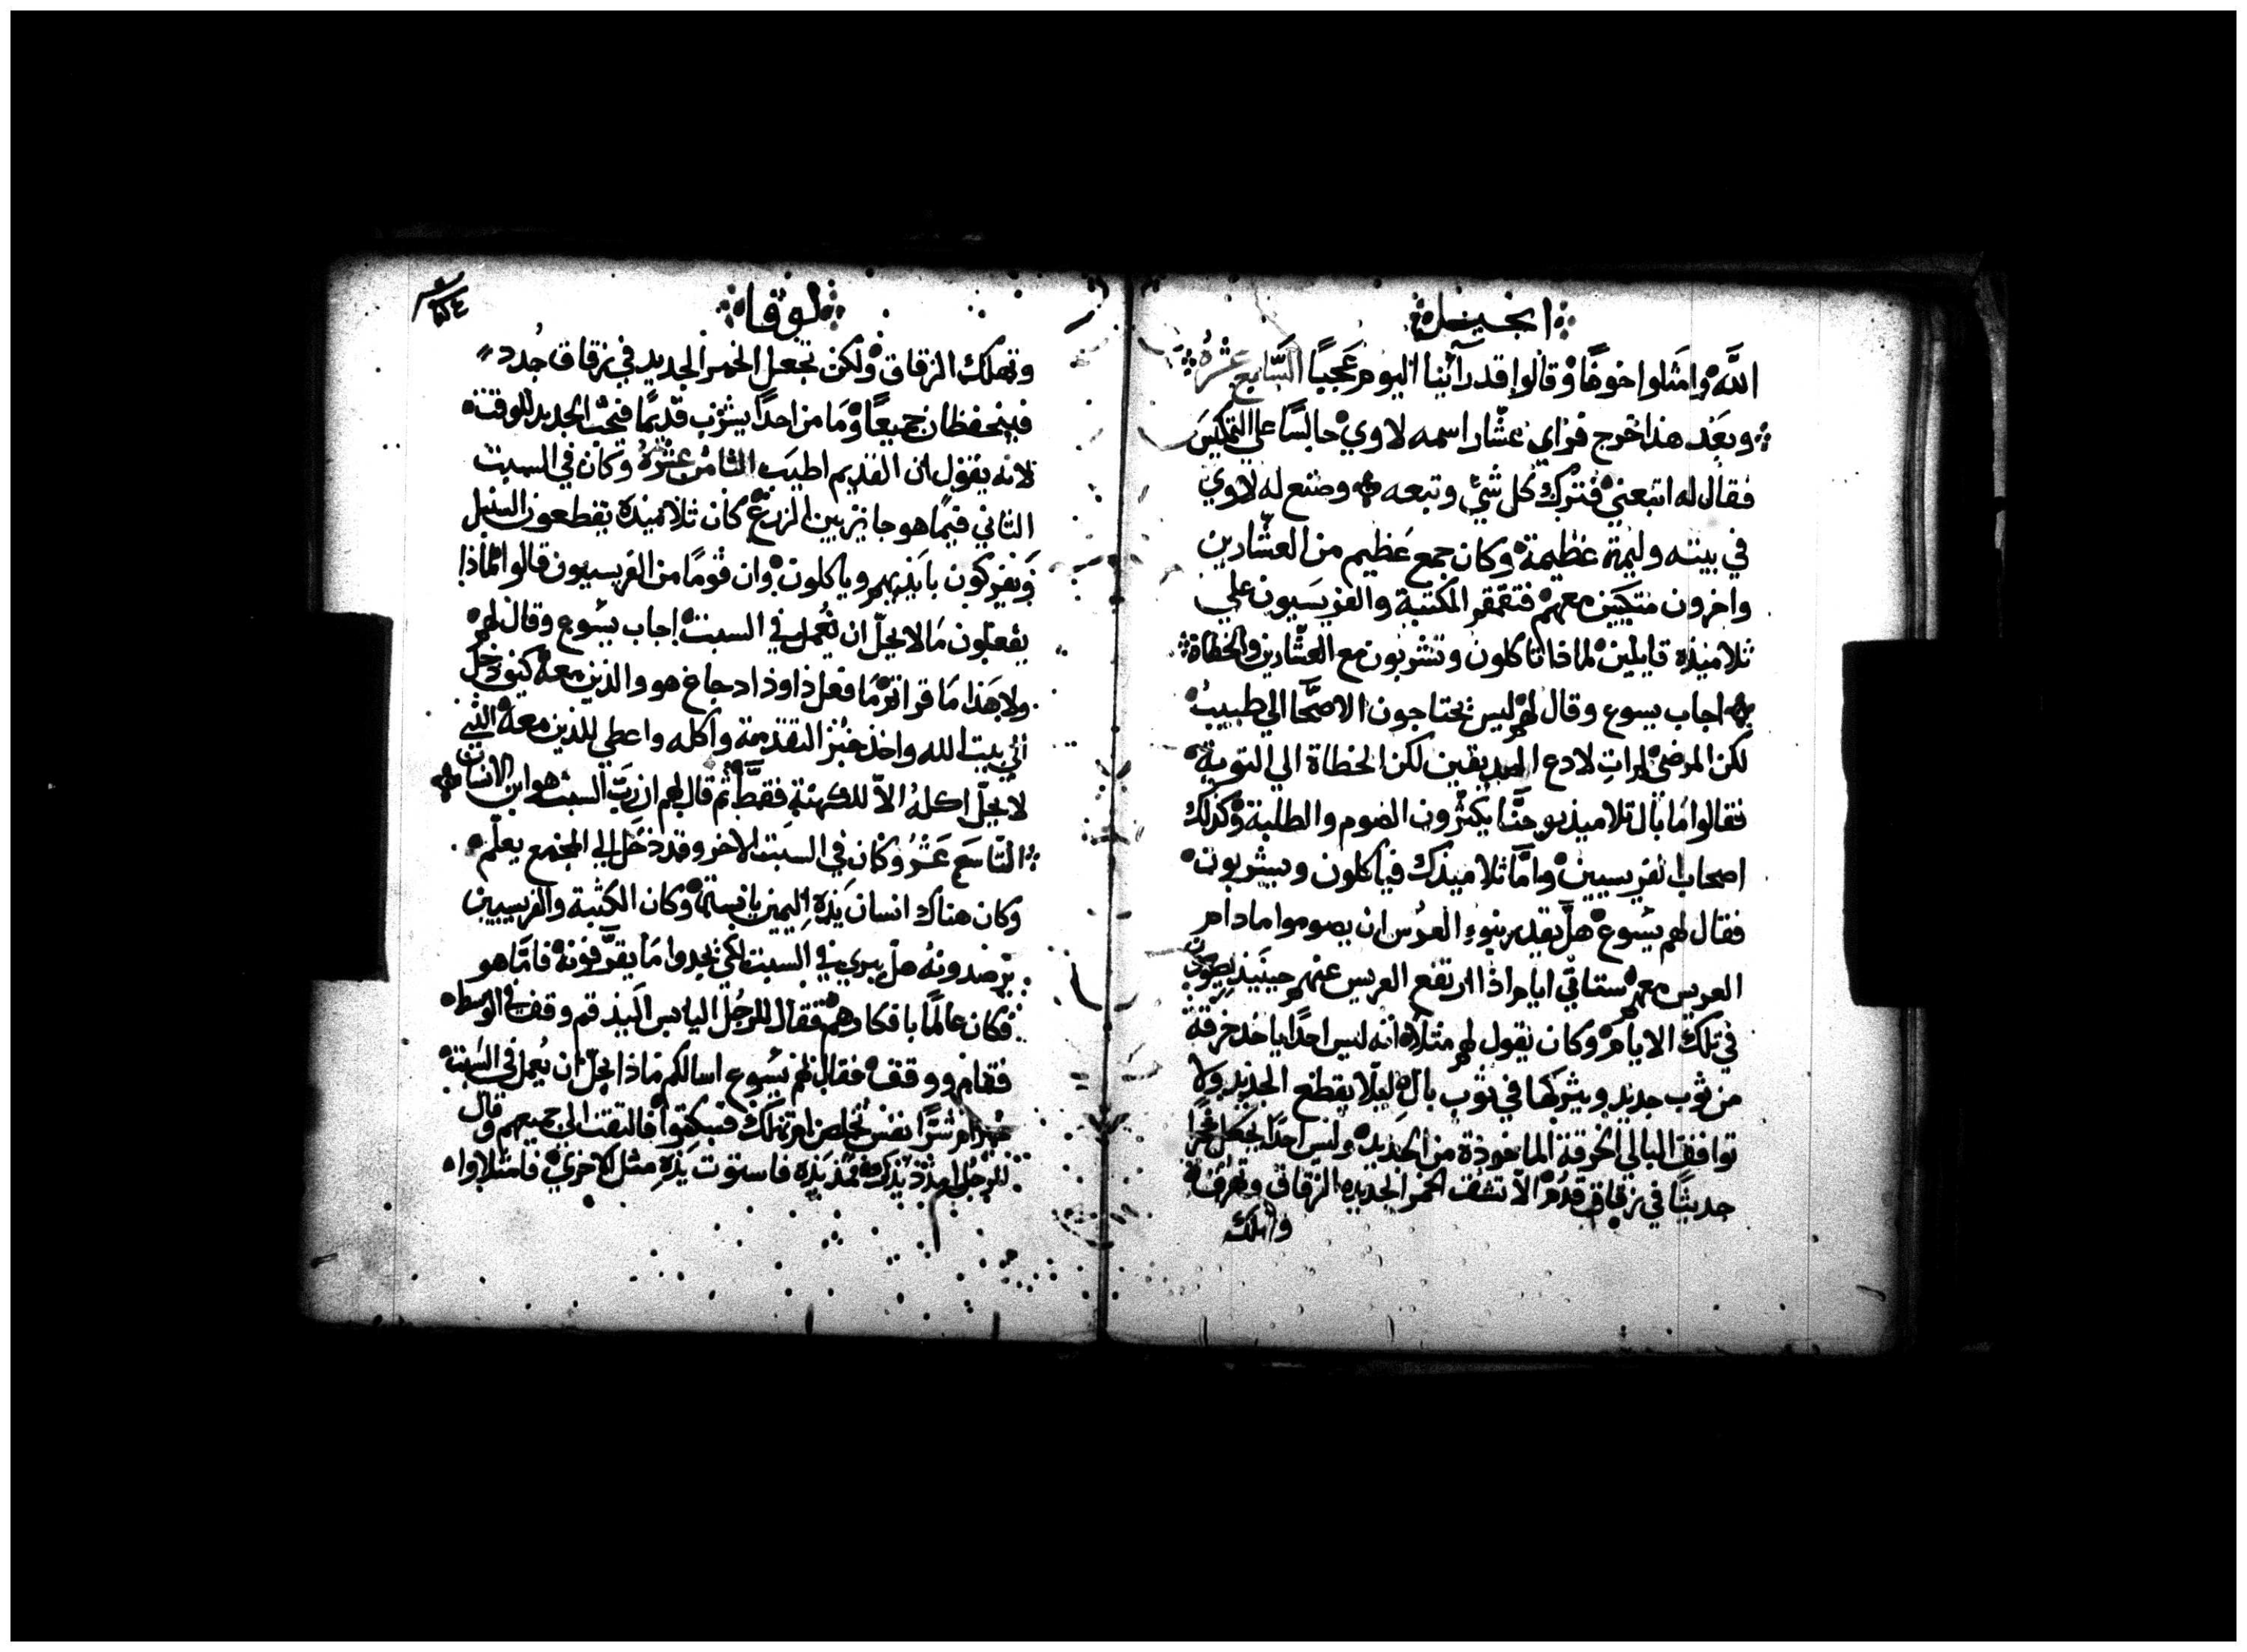 انجيل
الله وامتلوا خوفًا وقالوا قد رأينا اليوم عجبًا السَّابع عَشَرُ
وبعَد هذا خرج فراي عشّار اسمه لاوي جالسًا علي المكس
فقال له اتبعني فترك كُل شي وتبعه وصنع له لاوي
في بيته وليمة عظيمة وكان جمع عَظيم من العشّارين
واخرون متكيين معهم فتقمقم الكتبة والفريسَيون علي
تلاميذه قايلين لماذا تاكلون وتشربون مع العشّارين والخطاة
اجاب يسوع وقال لهم ليس يحتاجون الاصحَّا الي طبيبٌ
لكن المرضي لم اتِ لادع الصديقين لكن الخطاة الي التوبة
فقالوا مَا بَال تلاميذ يوحنَّا يكثرون الصوم والطلبة وكذلك
اصحاب الفريسيين وامَّا تلاميذك فياكلون ويشربون
فقال لهم يسوع هل يقدر بنوء العرُس ان يصوموا مادام
العريس معهم ستاتي ايام اذا ارتفع العريس عنهم حينَيذٍ يصومون
في تلك الايام وكان يقول لهم مثلًا انه ليس احدًا ياخد خرقة
من ثوب جديد ويتركها في ثوب بالٍ ليلّا يقطع الجديد ولا
توافق البالي الخرقة الماخوذة من الجديد وليس احدًا يجعَل خمرًا
حديثًا في زقاق قدُم الّا تشقت الخمر الجديده الزقاق وتُهرَق
وتهلك
لوقا
وتهلك الزقاق ولكن تجعل الخمر الجديد في زقاق جُدد
فينحفظان جميعًا ومَا من احدًا يشرَب قديمًا فيحَب الجديد للوقت
لانه يقول ان القديم اطيَب الثامن عشرُ وكان في السبت
التاني فيمَا هو جايز بين الزرع كان تلاميذه يقطعون السنبل
وَيفركون بايَديهم وياكلون وان قومًا من الفريسيون قالوا لماذا
يفعَلون مَا لا يحلّ ان يُعمل في السبت اجاب يسُوع وقال لهم
ولا هَذا مَا قراتم مَا فعل داوود اد جاع هو والذين معه كيف دخل
الي بيت الله واخذ خبُز التقدمة واكله واعطي للذين معه الَّتي
لا يحلّ اكلهُ الاّ للكهنةِ فقط ثم قال لهم ان رَبّ السبت هو ابن الانسان
التّاسَع عَشرُ وكان في السبَت الاخر وقد دخل الي المجمع يعلّم
وكان هناك انسان يَدهُ اليمين يابسة وكان الكتبة والفريسيين
يَرصدونهُ هل يبري في السبت لكي يجدوا مَا يقرَّفونه فامَّا هو
فكان عالمًا بافكارهم فقال للرجُل اليابس اليَد قم وقف في الوسط
فقام ووقف فقال لهم يسُوع اسالكم ماذا يحلّ ان يُعمل في السَبت
خيرًا ام شرًّا نفس تُخلص ام تهلك فسكتوا فالتفت الي جميعهم وقال
للرجُل امدُدْ يَدك فمَدّ يَدِه فاستوت يَدِه مثل الاخري فامتلاوا